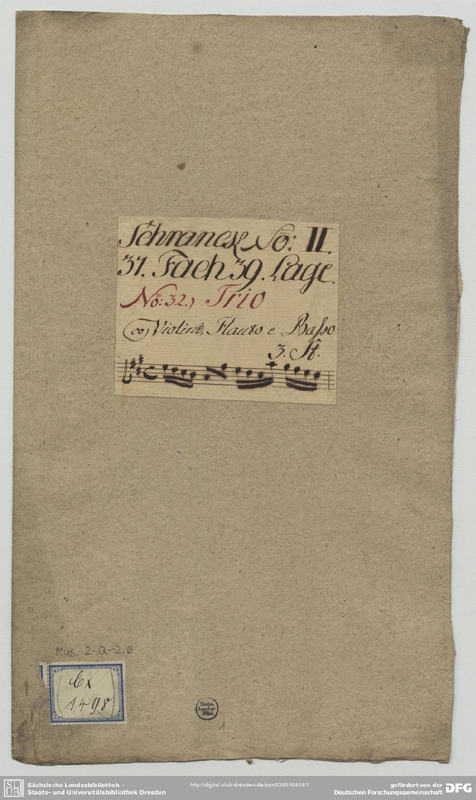 Schranck No: II.
31. Fach 39. Lage.
No: 32.) Trio
co Violino, Flauto e Basso
3. St.
Mus. 2-Q-2,6
Cx
1498
Sächs.
Landes-
Bibl.
1
Sächsische Landesbibliothek -
Staats- und Universitätsbibliothek Dresden
gefördert von der
Deutschen Forschungsgemeinschaft
DFG